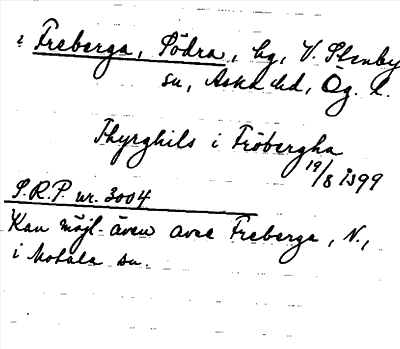 i Freberga, Södra, hg, V. Stenby
sn, Aska hd, Ög. l.
Thyrghils i Fröbergha
19/8 1399
S.R.P. nr. 3004
Kan möjl. även avse Freberga, N.,
i Motala sn.